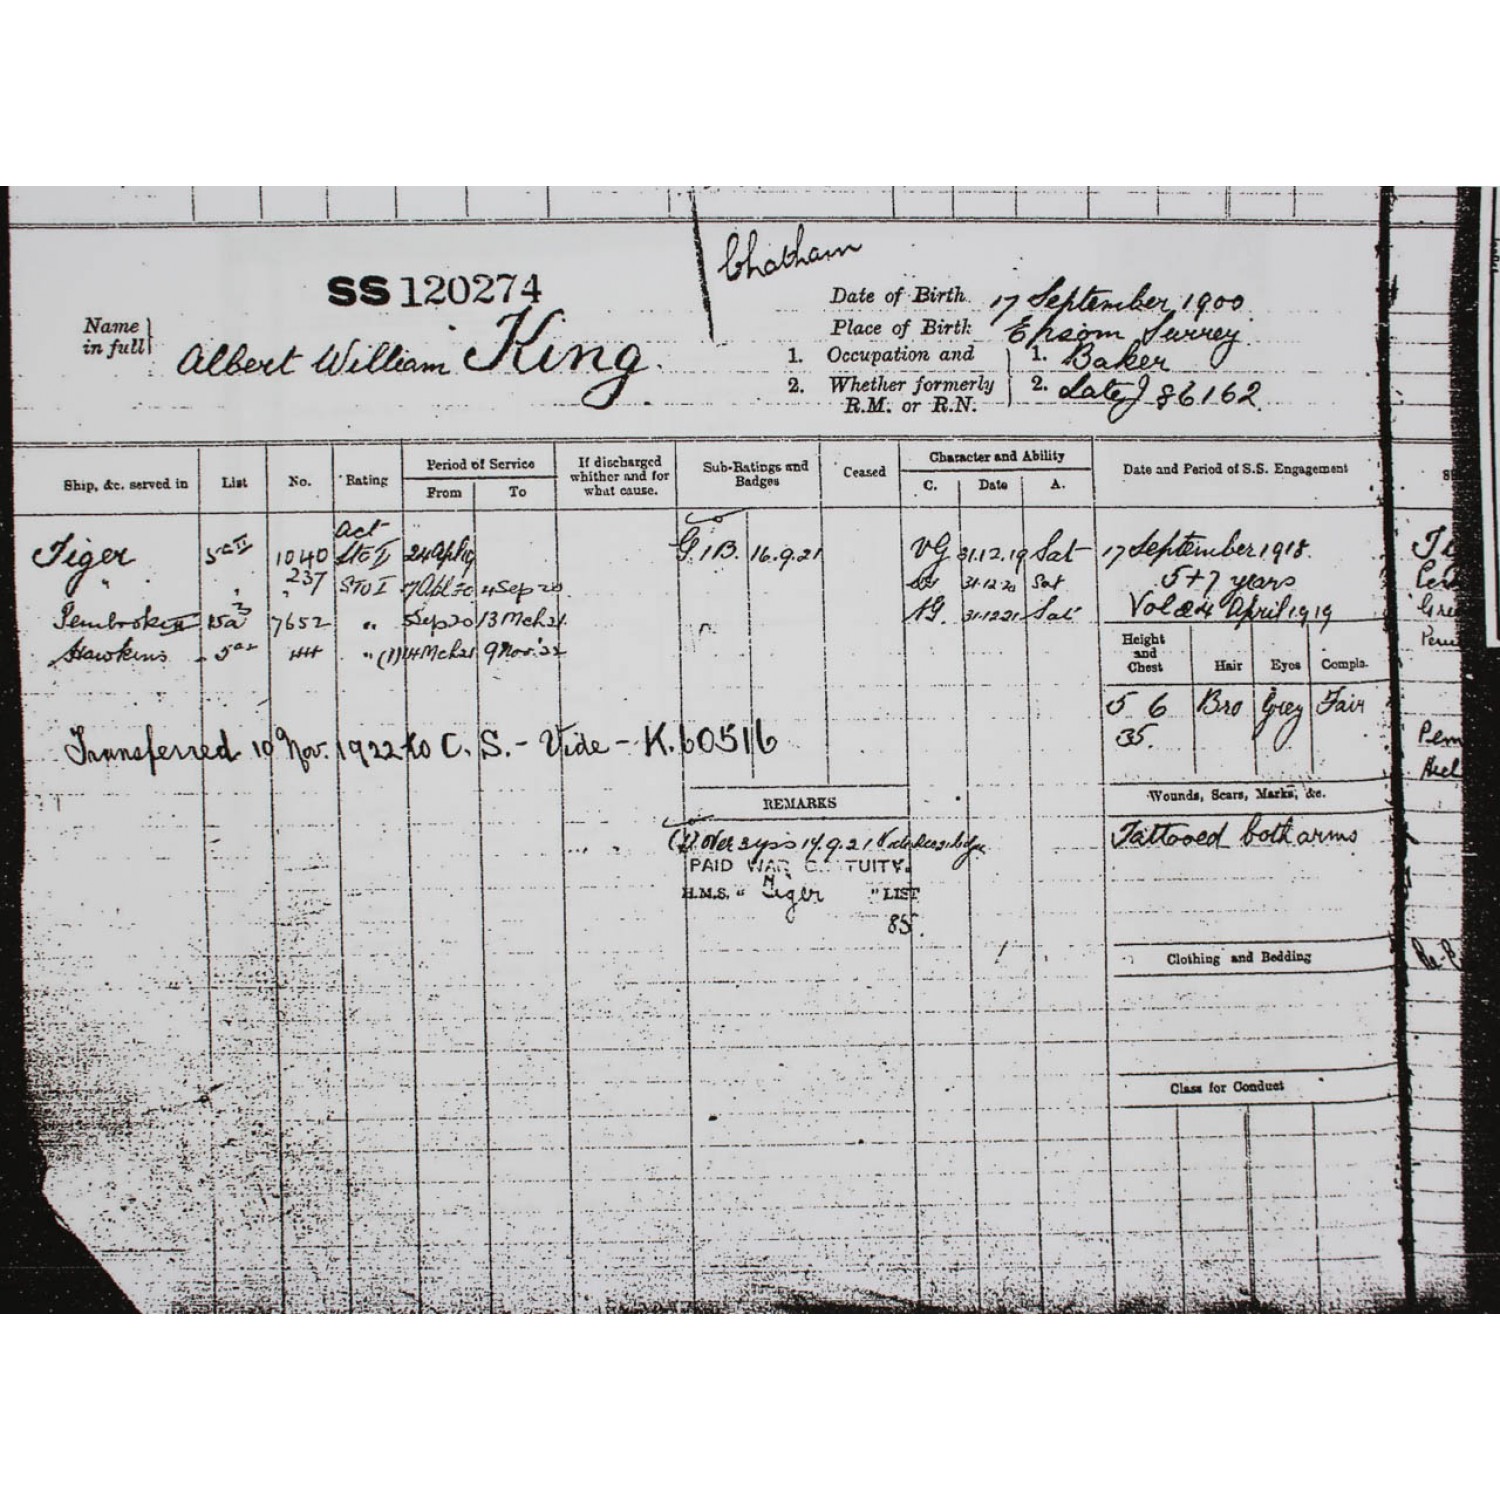 Chatham
SS 120274
Name in full Albert William King.
Date of Birth 17 September 1900
Place of Birth Epsom Surrey
1. Occupation and 1. Baker
2. Whether formerly R.M. or R.N. 2. Late J 86162
Ship, &c. served in List No. Rating Period of Service From To If discharged whither and for what cause. Sub-Ratings and Badges Ceased Character and Ability C. Date A. Date and Period of S.S. Engagement
Tiger 5a II 1040 Act Sto II 24 Apl 19 G.1B. 16.9.21 VG 31.12.19 Sat 17 September 1918.
" 237 Sto I 7 Apl 20 4 Sep 20 31.12.20 Sat 5+7 years
Pembroke II 15a3 7652 " 5 Sep 20 13 Mch 21 VG. 31.12.21 Sat Vol 24 April 1919
Hawkins 5a2 44 " (1) 14 Mch 21 9 Nov. 22
Height and Chest Hair Eyes Compls.
5 6 Bro Grey Fair
35.
Transferred 10 Nov. 1922 to C. S. - Vide - K. 60516
Wounds, Scars, Marks, &c.
Tattooed both arms
REMARKS
(1) over 3 yrs 14.9.21
PAID WAR TUITY.
H.M.S. " Tiger " LIST
85.
Clothing and Bedding
Class for Conduct